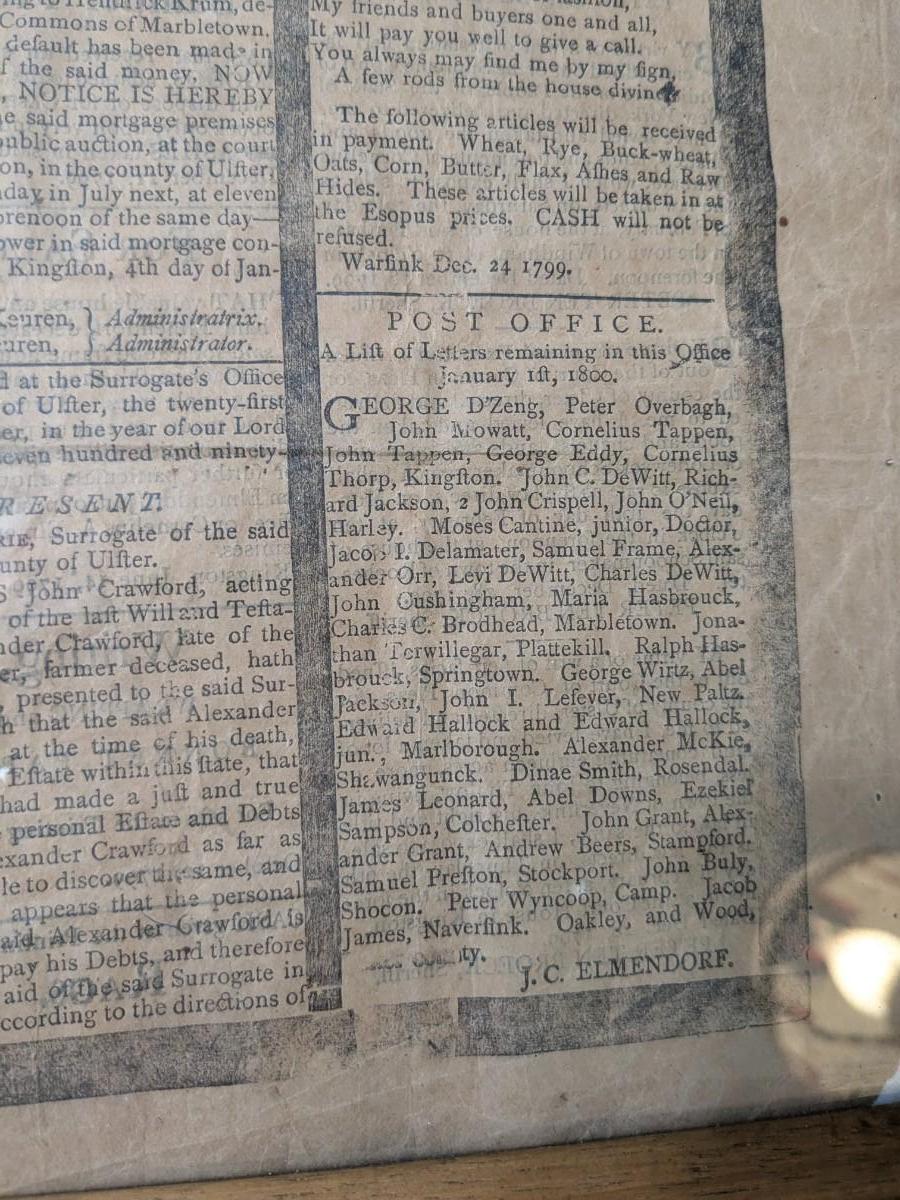 ng to Hendrick Krum, de-
Commons of Marbletown.
default has been made in
f the said money. NOW
, NOTICE IS HEREBY
e said mortgage premises
ublic auction, at the court
on, in the county of Ulſter,
day in July next, at eleven
orenoon of the same day—
ower in said mortgage con-
Kingſton, 4th day of Jan-
Keuren, } Administratrix.
uren, } Administrator.
d at the Surrogate's Office
of Ulſter, the twenty-first
er, in the year of our Lord
seven hundred and ninety-
RESENT.
RIE, Surrogate of the said
unty of Ulſter.
S John Crawford, acting
of the laſt Will and Teſta-
nder Crawford, late of the
er, farmer deceased, hath
, presented to the said Sur-
h that the said Alexander
at the time of his death,
Eſtate within this ſtate, that
had made a juſt and true
personal Eſtate and Debts
exander Crawford as far as
le to discover the same, and
appears that the personal
aid Alexander Crawford is
pay his Debts, and therefore
aid of the said Surrogate in
ccording to the directions of
My friends and buyers one and all,
It will pay you well to give a call.
You always may find me by my ſign,
A few rods from the house divine
The following articles will be received
in payment. Wheat, Rye, Buck-wheat,
Oats, Corn, Butter, Flax, Aſhes and Raw
Hides. These articles will be taken in at
the Esopus prices. CASH will not be
refused.
Warſink Dec. 24 1799.
POST OFFICE.
A Liſt of Letters remaining in this Office
January 1ſt, 1800.
GEORGE D'Zeng, Peter Overbagh,
John Mowatt, Cornelius Tappen,
John Tappen, George Eddy, Cornelius
Thorp, Kingſton. John C. DeWitt, Rich-
ard Jackson, 2 John Crispell, John O'Neil,
Harley. Moses Cantine, junior, Doctor,
Jacob I. Delamater, Samuel Frame, Alex-
ander Orr, Levi DeWitt, Charles DeWitt,
John Cushingham, Maria Hasbrouck,
Charles C. Brodhead, Marbletown. Jona-
than Terwillegar, Plattekill. Ralph Has-
brouck, Springtown. George Wirtz, Abel
Jackson, John I. Lefever, New Paltz.
Edward Hallock and Edward Hallock,
jun., Marlborough. Alexander McKie,
Shawangunck. Dinae Smith, Rosendal.
James Leonard, Abel Downs, Ezekiel
Sampson, Colcheſter. John Grant, Alex-
ander Grant, Andrew Beers, Stampford.
Samuel Preſton, Stockport. John Buly,
Shocon. Peter Wyncoop, Camp. Jacob
James, Naverſink. Oakley, and Wood,
county.
J. C. ELMENDORF.